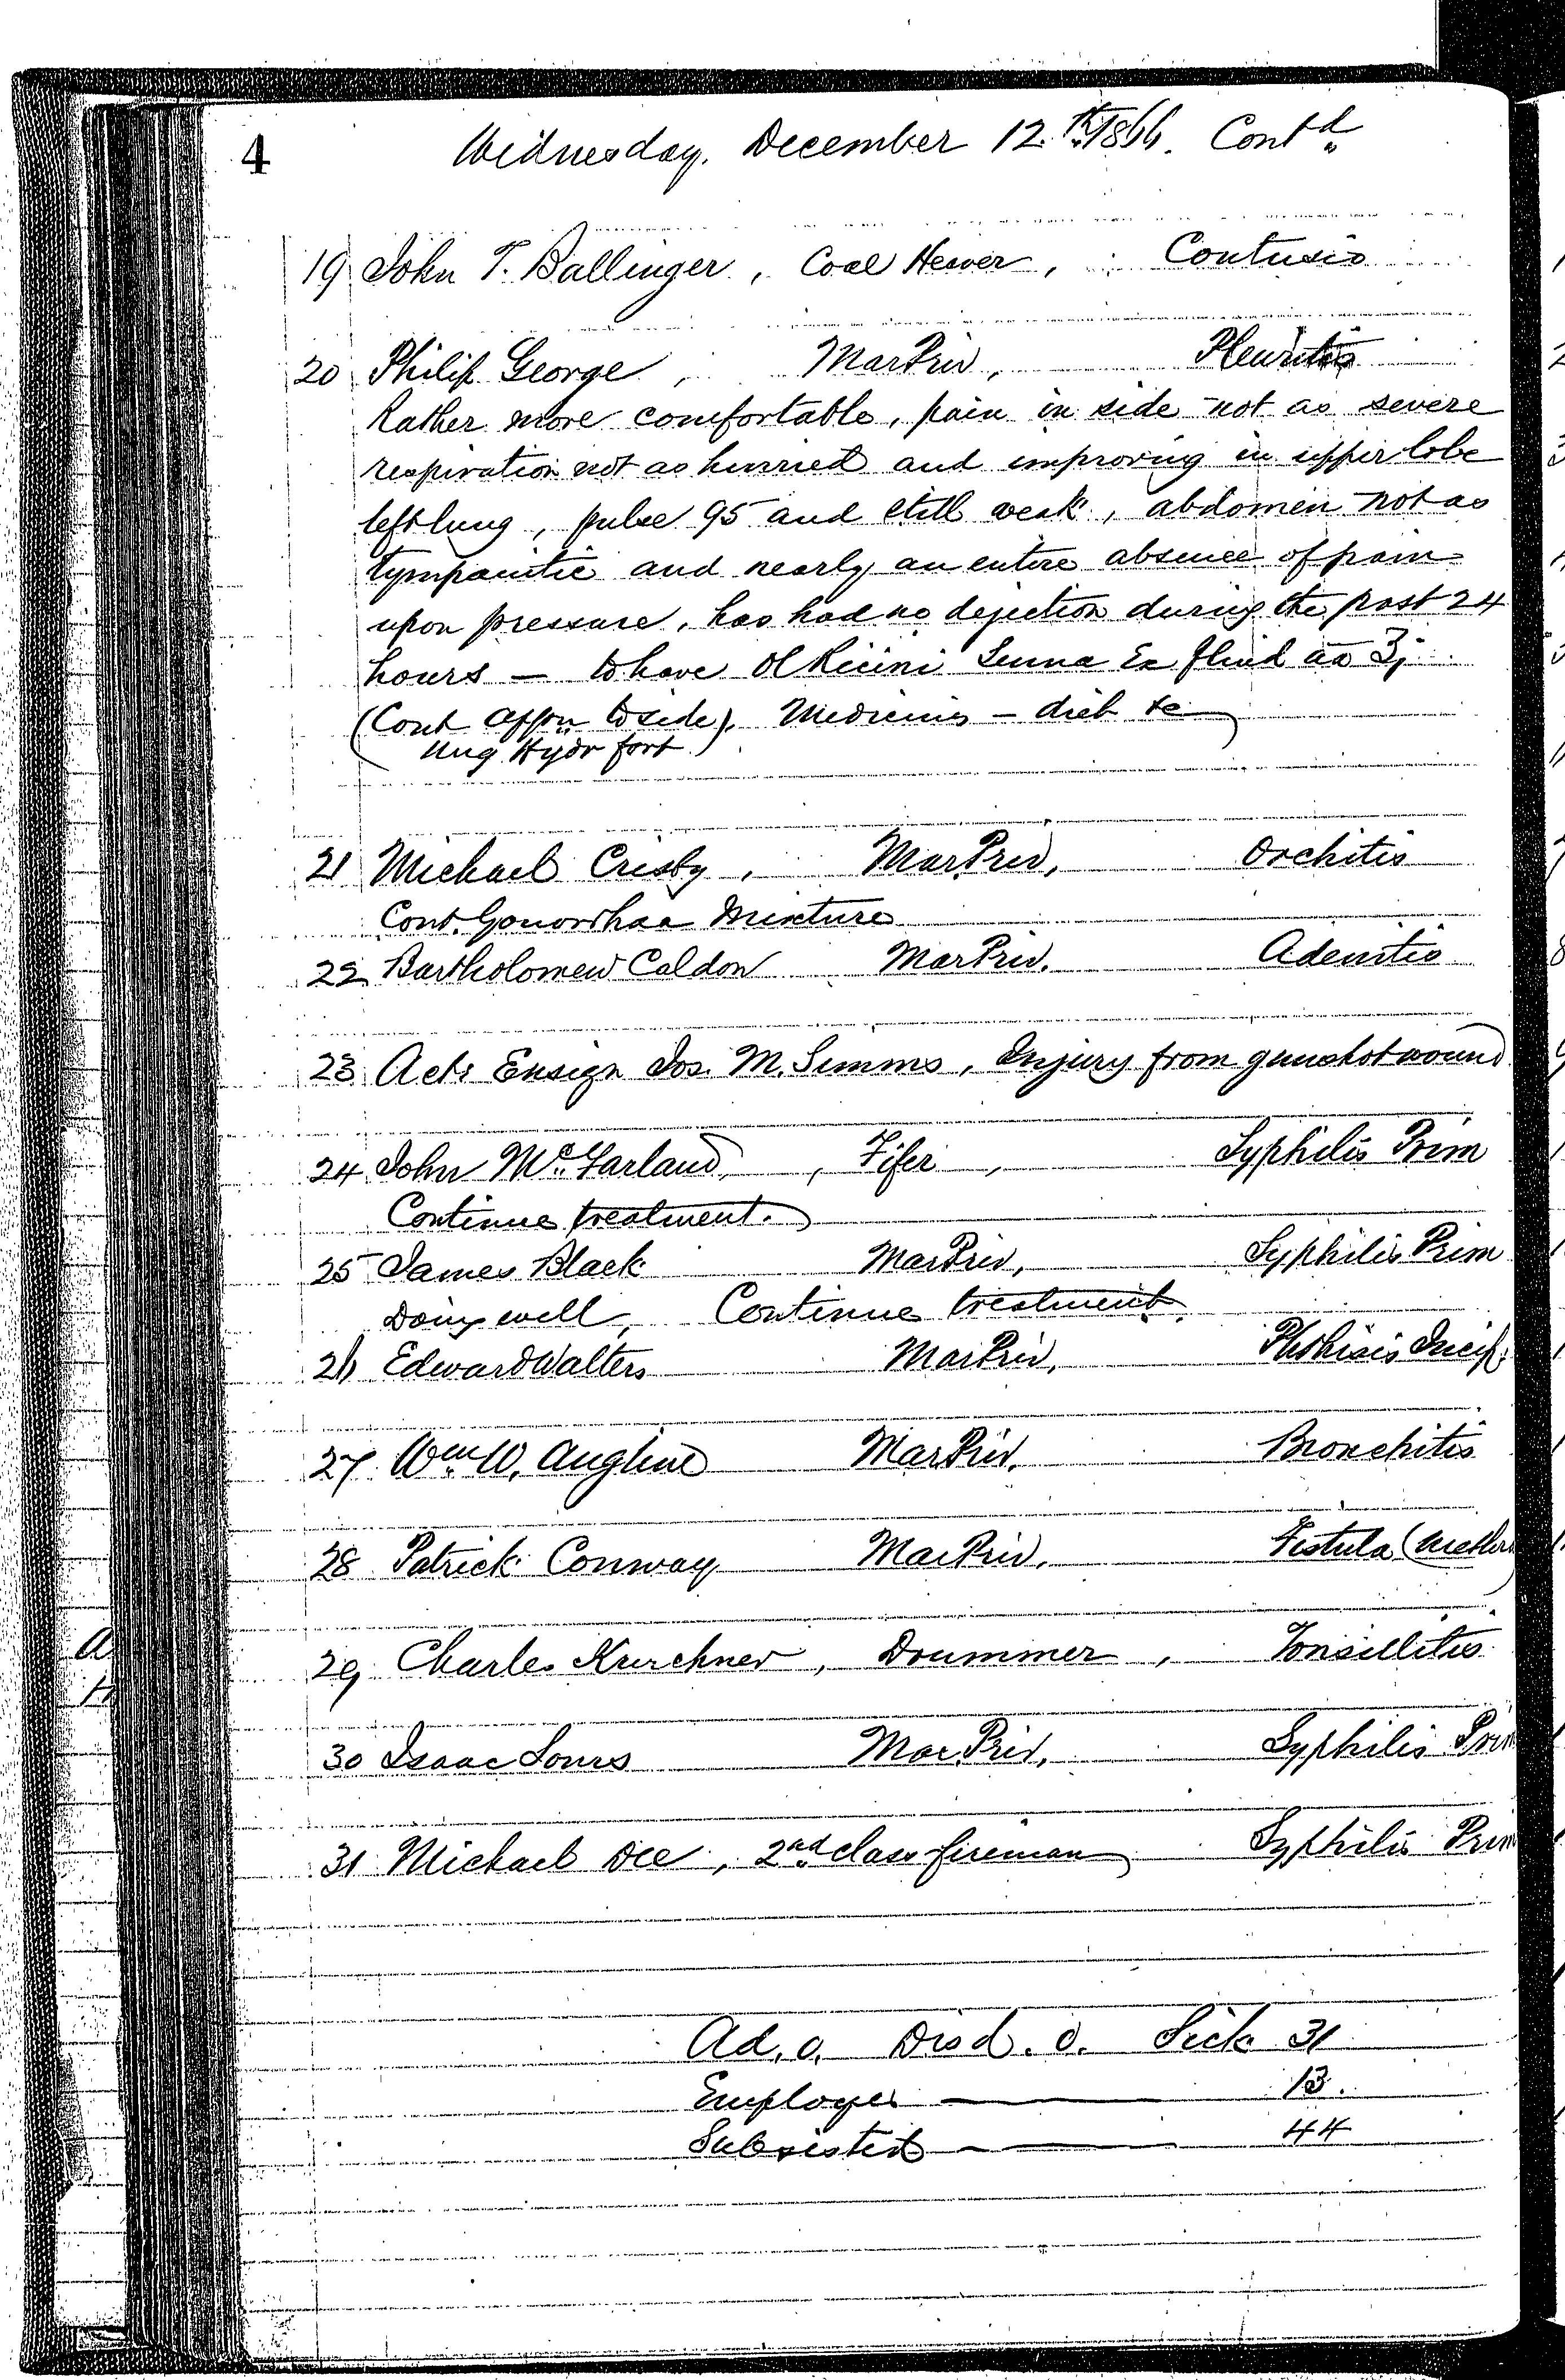 4
Wednesday, December 12.th 1866. Contd
19 John T. Ballinger, Coal Heaver, Contusio
20 Philip George, Mar Priv, Pleuritis
Rather more comfortable, pain in side not as severe
respiration not as hurried and improving in upper lobe
left lung, pulse 95 and still weak, abdomen not as
tympanitic and nearly an entire absence of pain
upon pressure, has had no dejection during the past 24
hours — to have Ol Ricini Senna Ex fluid aa ʒj
(Cont Appn to side). Medicines — diet &c
Ung Hydr fort
21 Michael Crisby, Mar Priv, Orchitis
Cont. Gonorrhaa Mixture
22 Bartholomew Caldon Mar Priv. Adenitis
23 Act: Ensign Jos. M. Simms, Injury from gunshot wound
24 John Mc.Garland, Fifer, Syphilis Prim
Continue treatment.
25 James Black Mar Priv, Syphilis Prim
Doing well, Continue treatment.
26 Edward Walters Mar Priv, Phthisis Incip.
27 Wm. W. Mar Priv. Bronchitis
28 Patrick Conway Mar Priv. Fistula (Urethra
29 Charles Kurchner, Drummer, Tonsillitis
30 Isaac Sours Mar. Priv. Syphilis Prim
31 Michael Dee, 2nd class fireman Syphilis Prim
Ad. 0. Disd. 0. Sick 31
Employes — 13.
Subsisted — 44